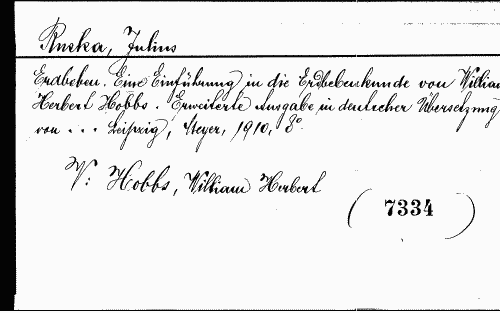 Ruska, Julius
Erdbeben. Eine Einführung in die Erdbebenkunde von William
Herbert Hobbs. Erweiterte Ausgabe in deutscher Übersetzung
von ... Leipzig, Meyer, 1910, 8°.
V: Hobbs, William Herbert
(7334)